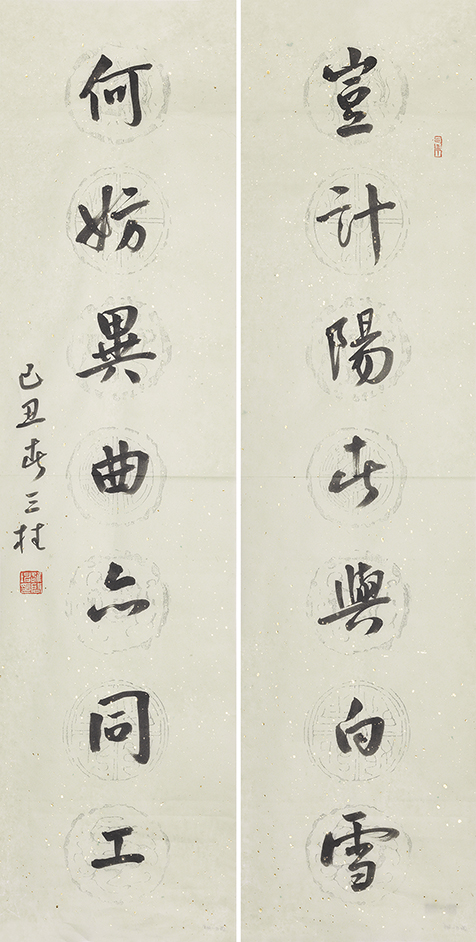 豈計陽春與白雪
何妨異曲亦同工
己丑春三柱